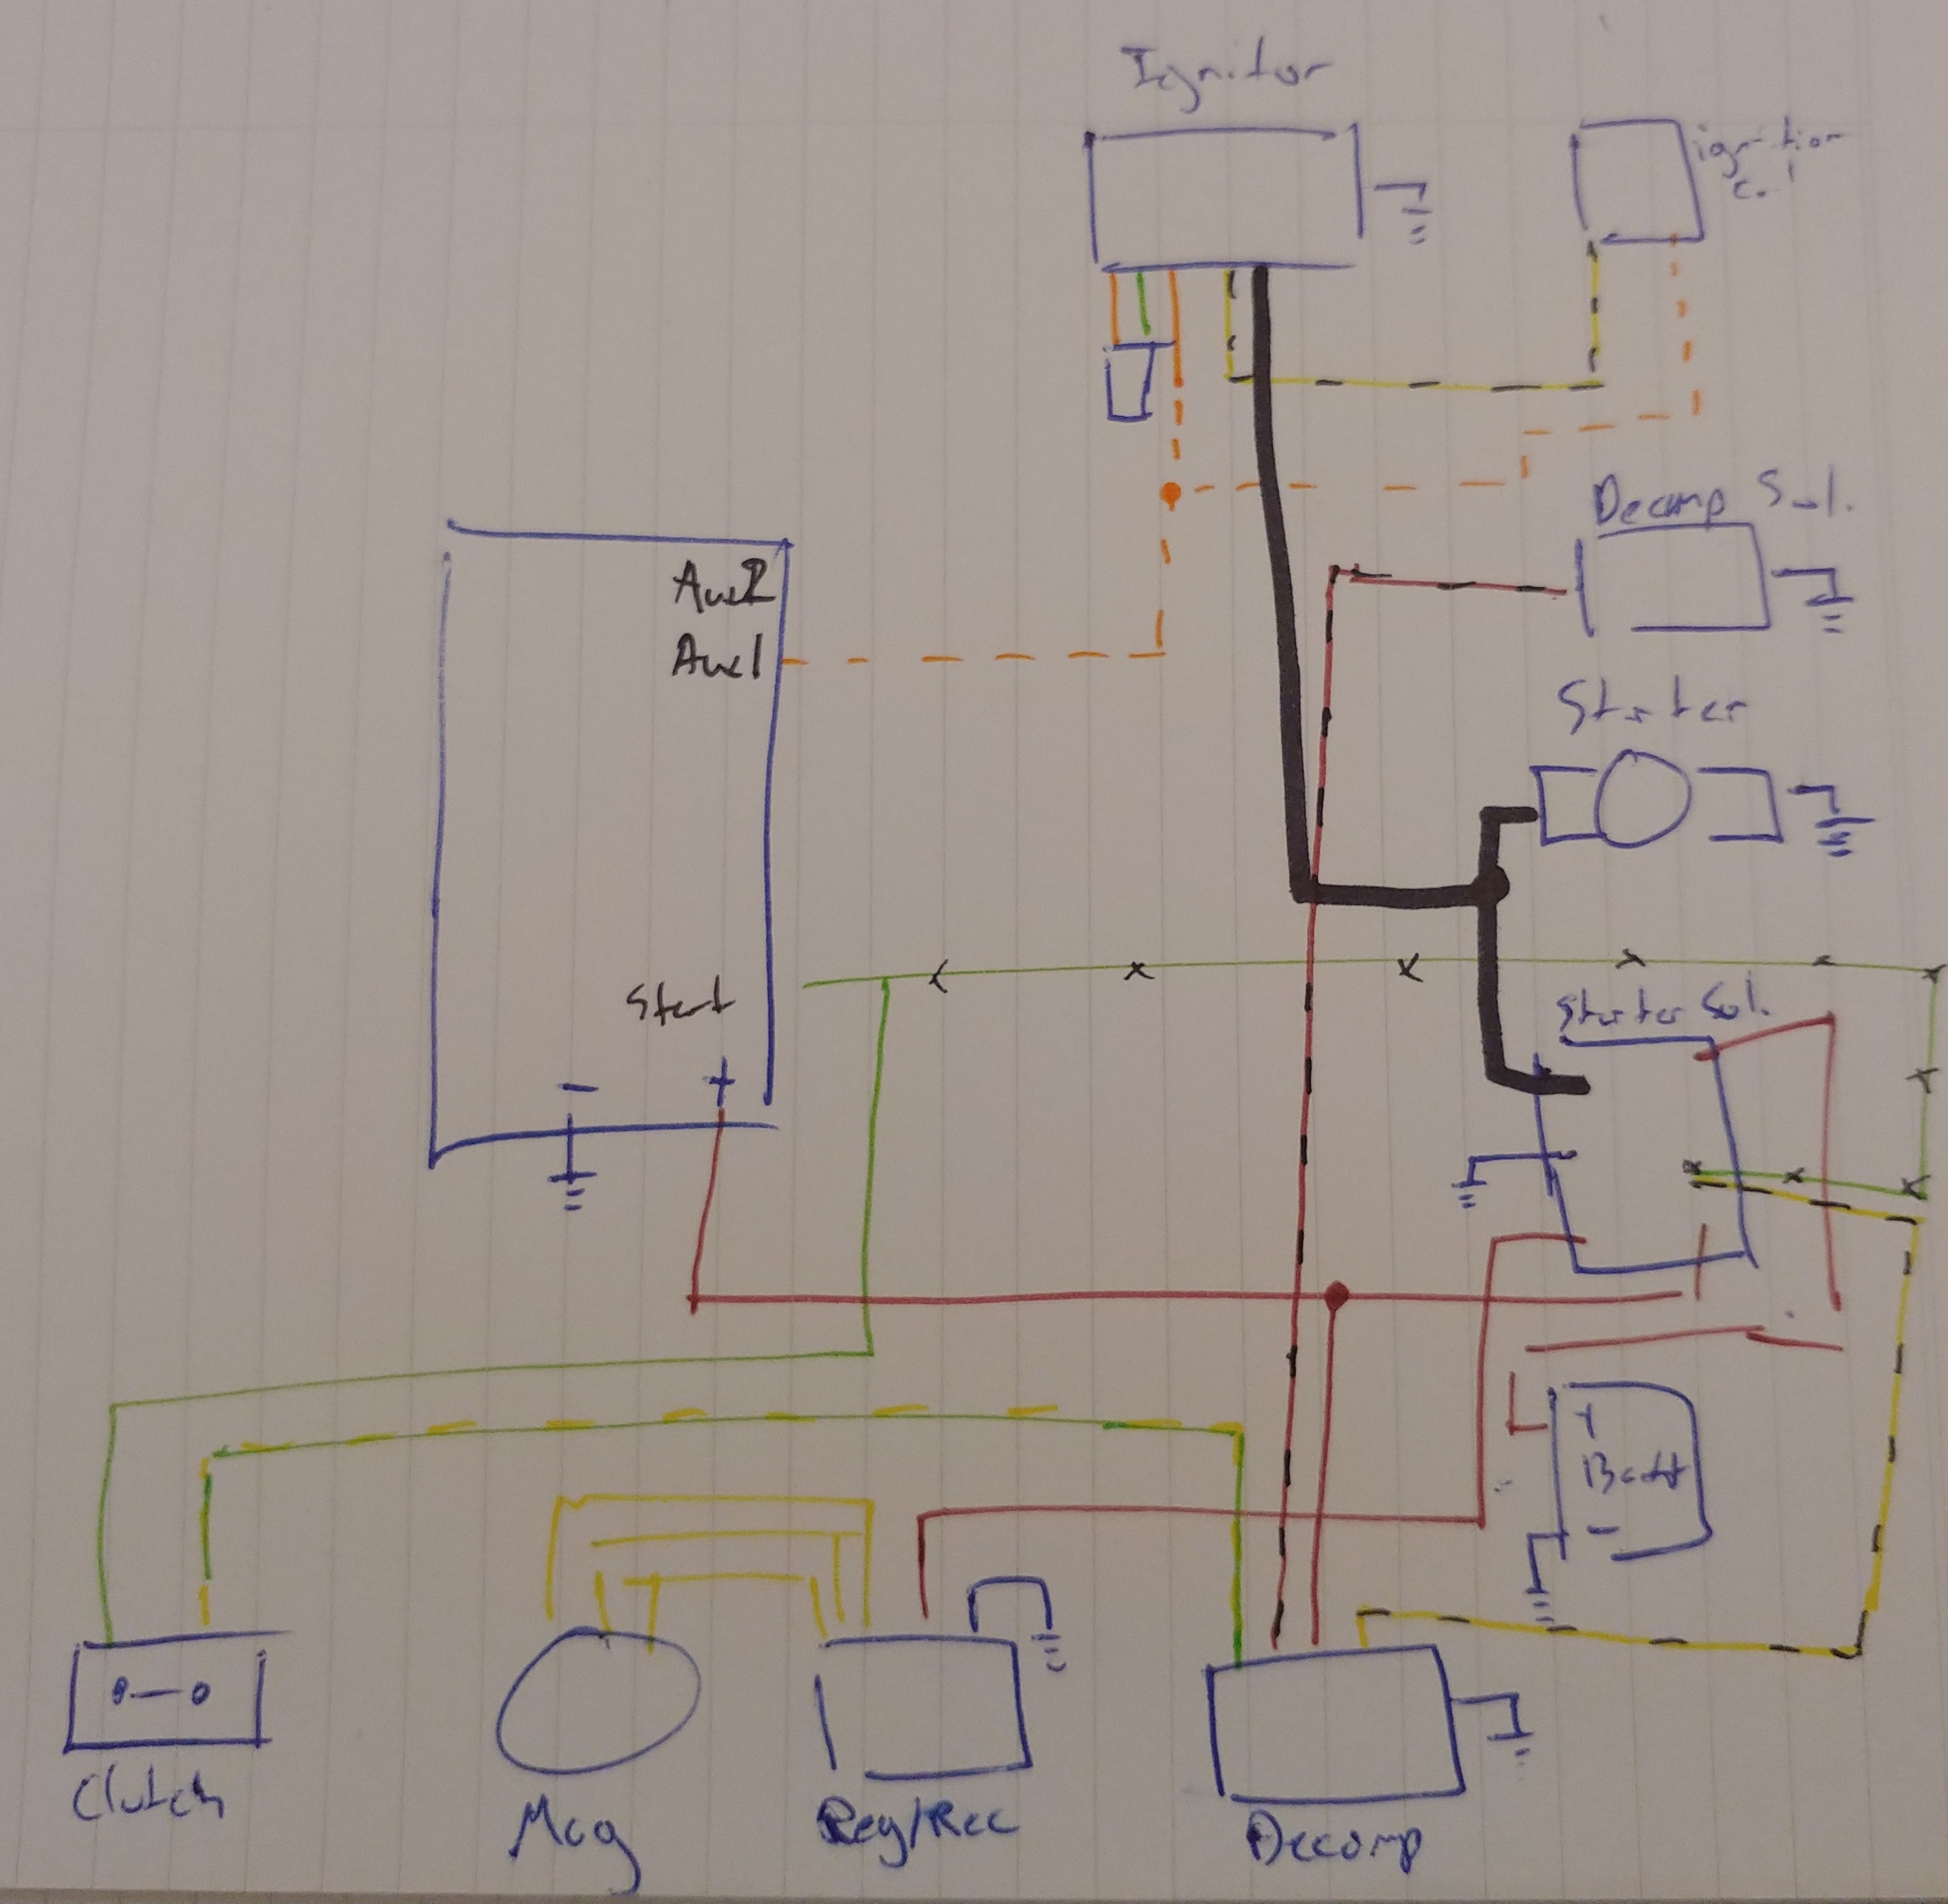 Ignitor
ignition
coil
Decomp Sol.
Aux2
Aux1
Starter
Start
Starter Sol.
- +
+
Batt
-
Clutch
Mag
Reg/Rec
Decomp